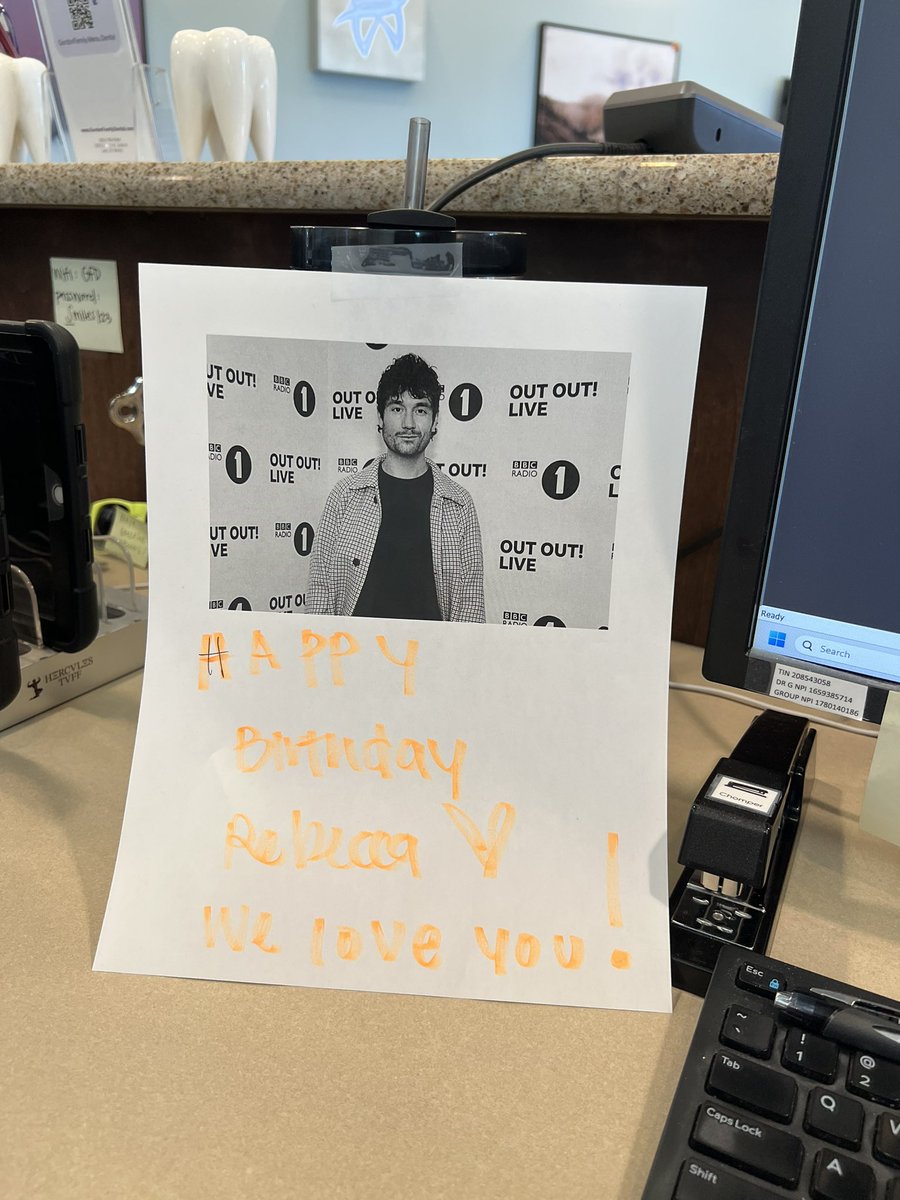 www.GordonFamilyDental.com
OUT OUT!
LIVE
BBC
RADIO
1
OUT OUT!
LIVE
1
OUT OUT!
LIVE
1
OUT OUT!
LIVE
BBC
RADIO
OUT OUT!
BBC
RADIO
1
OUT OUT!
BBC
RADIO
1
OUT OUT!
LIVE
BBC
HAPPY
Birthday
Rebecca
We love you!
HERCULES
TUFF
password:
Ready
Search
TIN 208543058
DR G NPI 1659385714
GROUP NPI 1780140186
Chomper
Esc
~
`
!
1
@
2
Tab
Q
Caps Lock
A
Shift